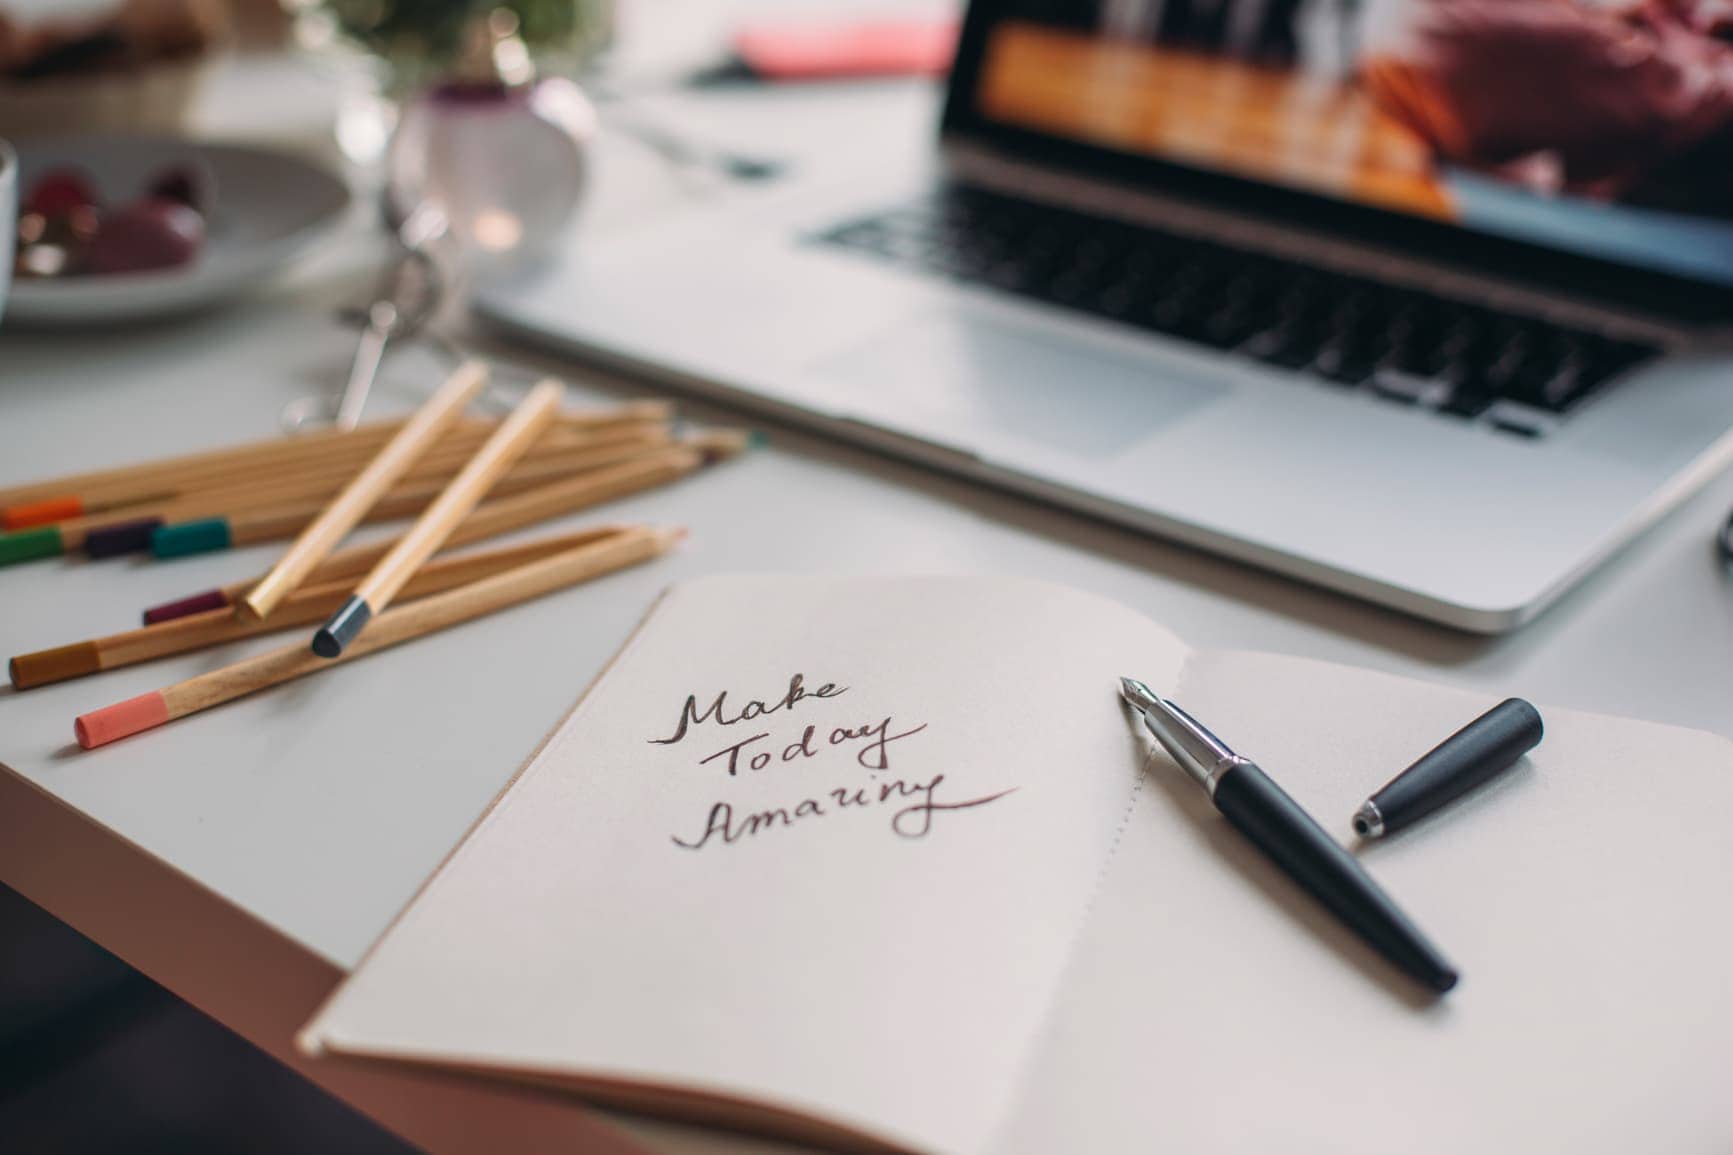 Make
Today
Amazing